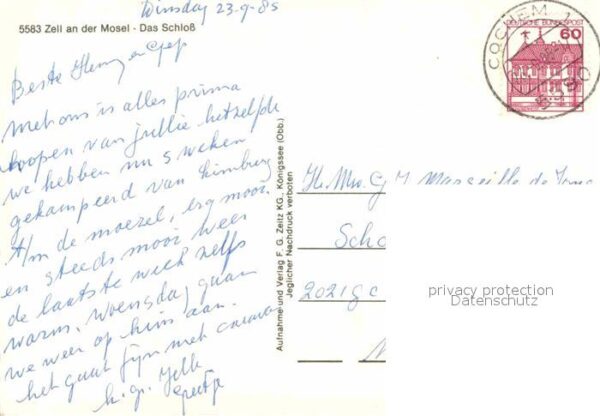 Dinsdag 23-9-85
5583 Zell an der Mosel - Das Schloß
Beste Henny en Gep
Met ons is alles prima
hoopen van jullie hetzelfde
we hebben nu 5 weken
gekampeerd van Limburg
t/m de moezel, erg mooi
en steeds mooi weer
de laatste week zelfs
warm, woensdag gaan
we weer op huis aan.
het gaat fijn met caravan
h. gr. Jelle
Greetje
Aufnahme und Verlag F. G. Zeitz KG., Königssee (Obb.)
Jeglicher Nachdruck verboten
COCHEM 1
5590
DEUTSCHE BUNDESPOST
60
G M Marseille de
Scho
2021 GC
privacy protection
Datenschutz